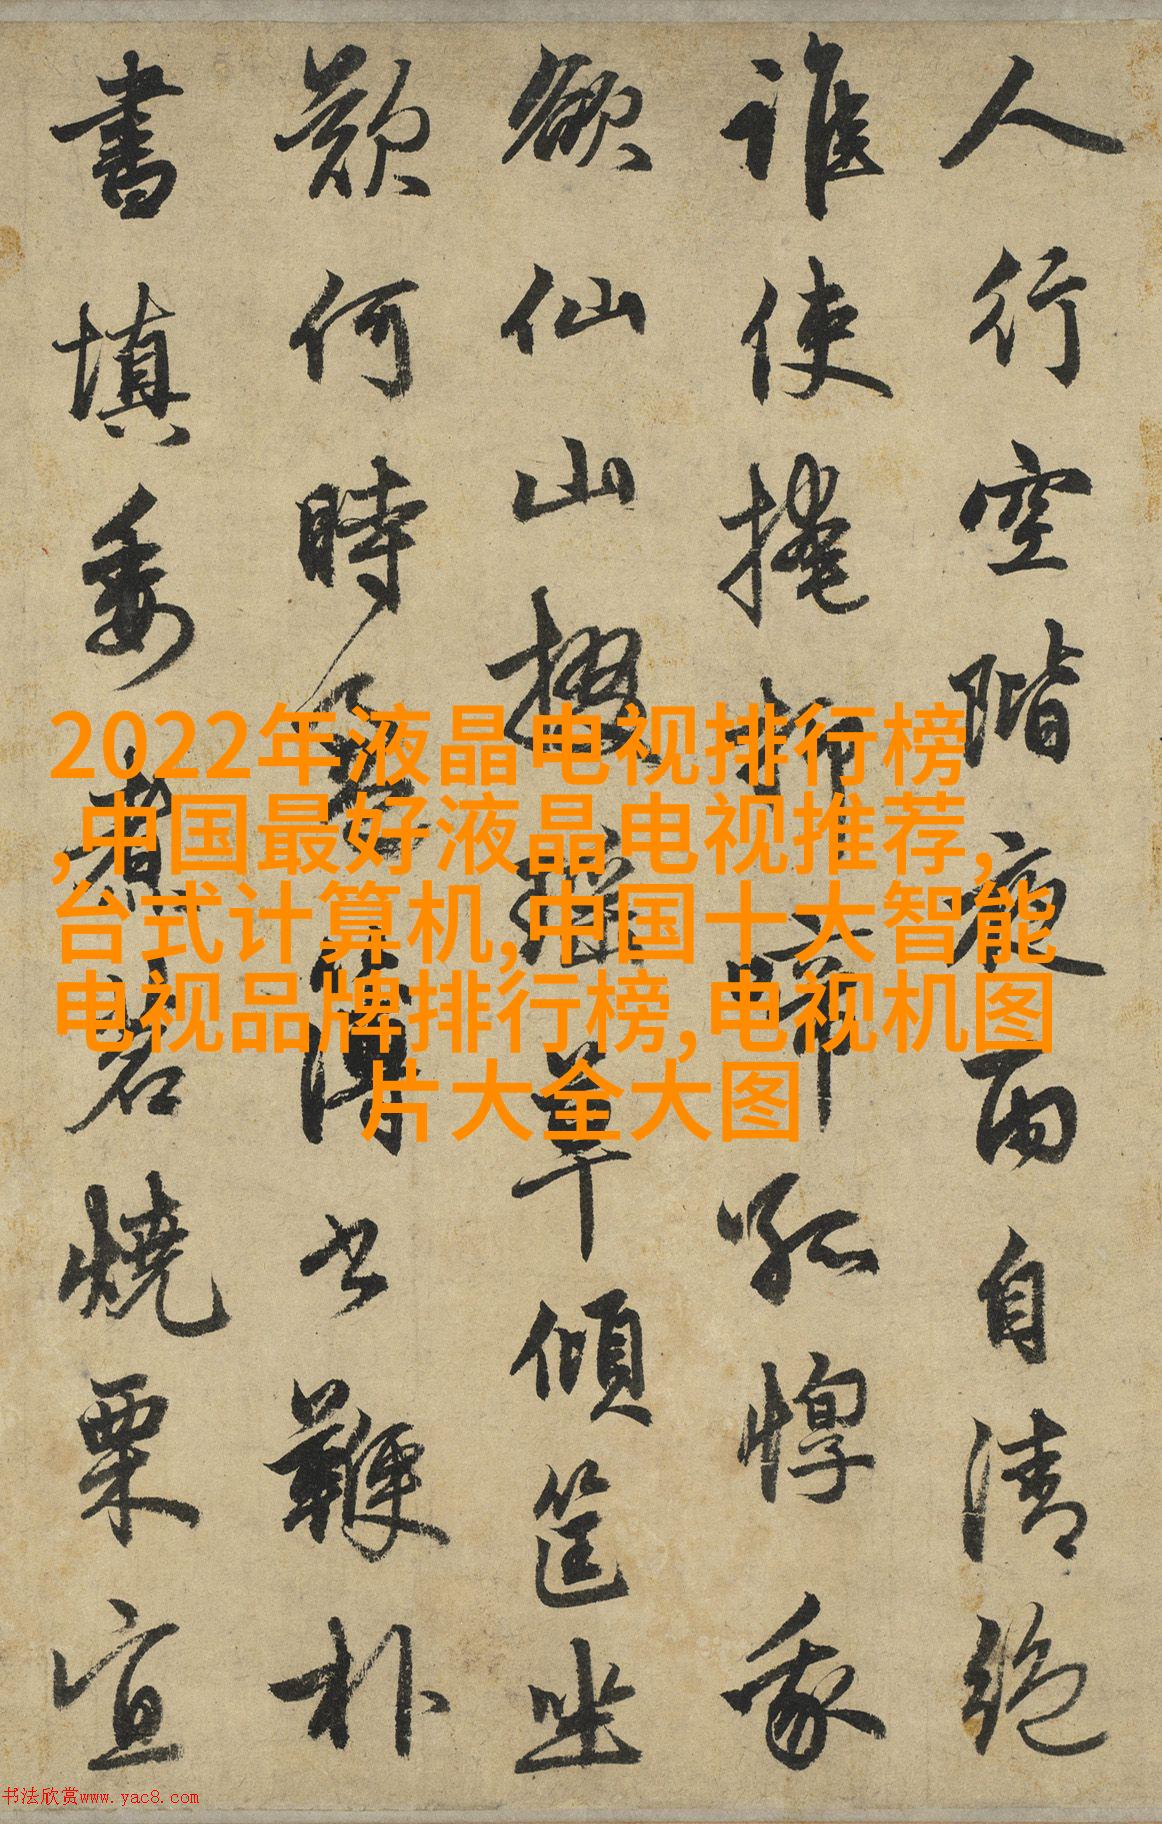 人行空階夜雨自清絕
誰使掩抑啼孤惸我
欲仙山掇瑤草傾筐坐
歎何時薄書鞭扑
書填委煮茗燒栗宜
2022年液晶电视排行榜
,中国最好液晶电视推荐,
台式计算机,中国十大智能
电视品牌排行榜,电视机图
片大全大图
书法欣赏www.yac8.com